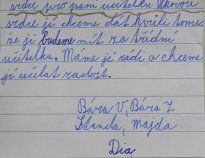 srdce pro paní učitelku. Takovou
srdce jí chceme dát kvůli tomu
že ji budeme mít za třídní
učitelku. Máme ji rádi a chceme
jí udělat radost.
Bára V, Bára Z
Standa, Majda
Dia